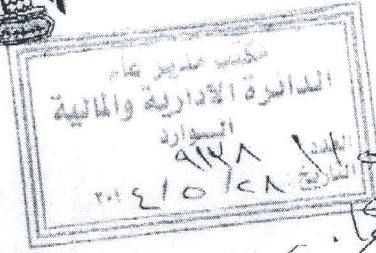 مكتب مدير عام
الدائرة الادارية والمالية
الوارد
العدد: ٩١٣٨
التاريخ: ٢٨ / ٥ / ٢٠١٤